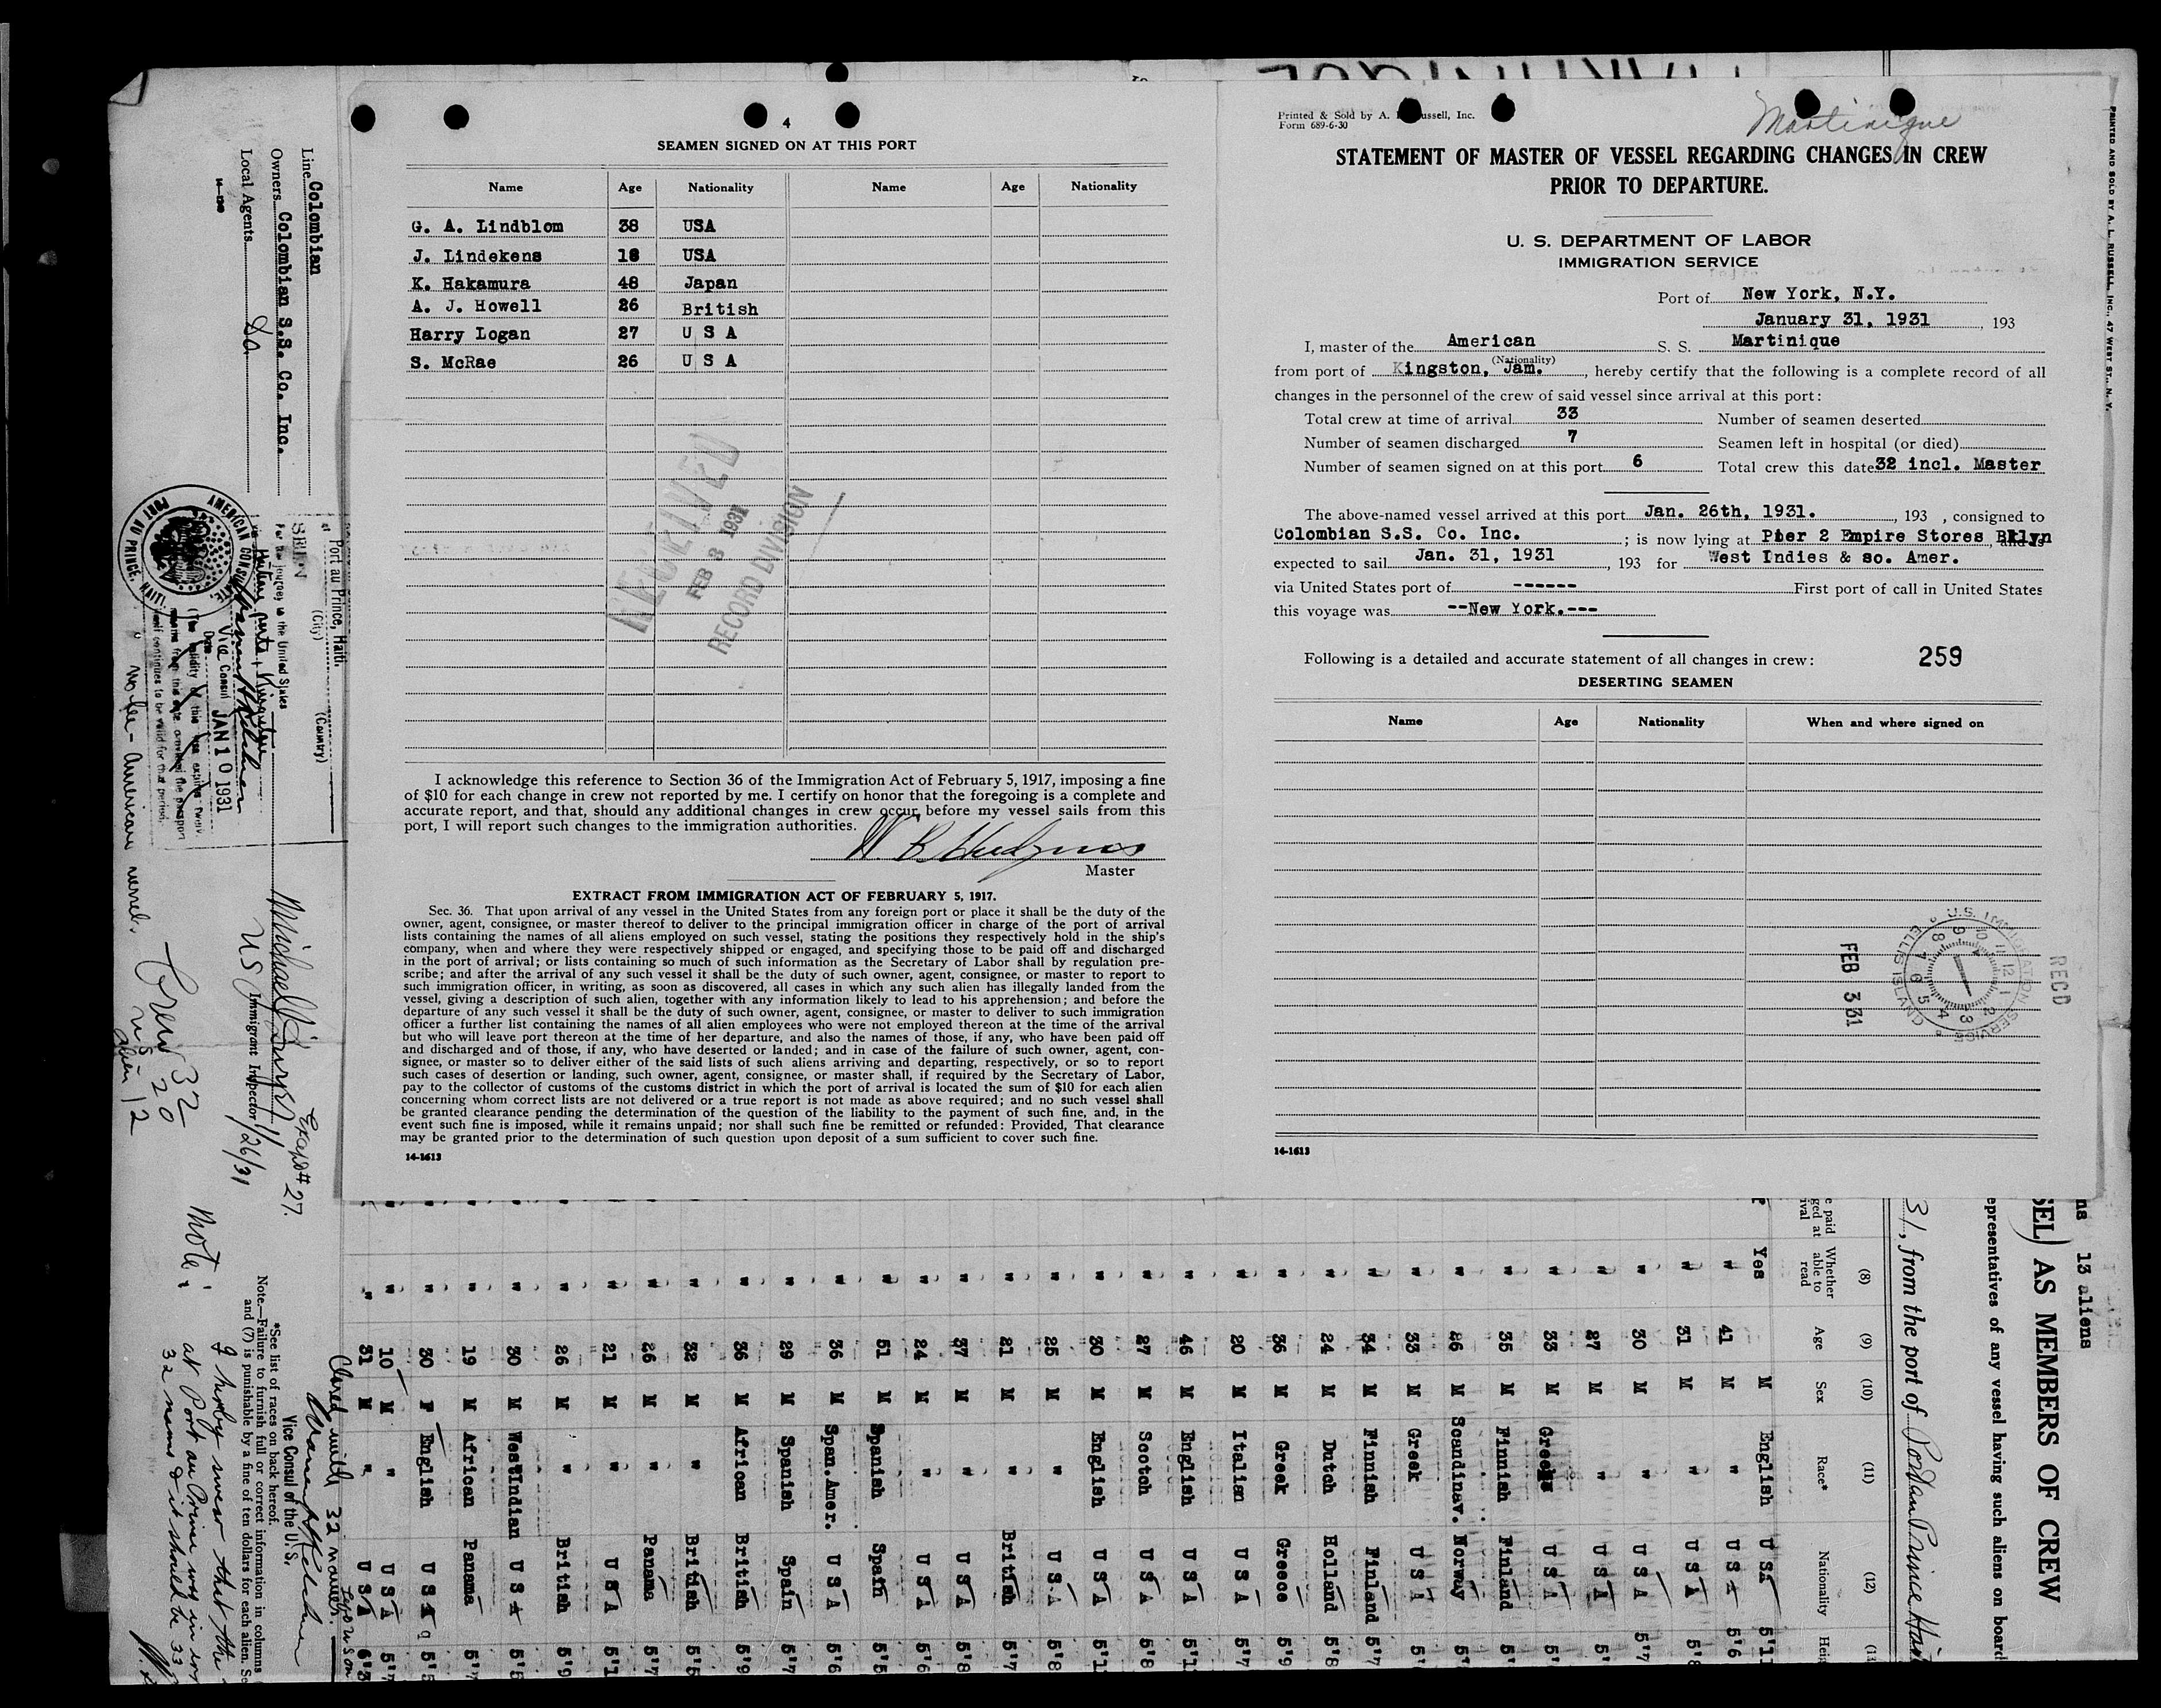 4
SEAMEN SIGNED ON AT THIS PORT
Name Age Nationality Name Age Nationality
G. A. Lindblom 38 USA
J. Lindekens 18 USA
K. Hakamura 48 Japan
A. J. Howell 26 British
Harry Logan 27 U S A
S. McRae 26 U S A
RECEIVED
FEB 3 1931
RECORD DIVISION
I acknowledge this reference to Section 36 of the Immigration Act of February 5, 1917, imposing a fine
of $10 for each change in crew not reported by me. I certify on honor that the foregoing is a complete and
accurate report, and that, should any additional changes in crew occur, before my vessel sails from this
port, I will report such changes to the immigration authorities.
Master
EXTRACT FROM IMMIGRATION ACT OF FEBRUARY 5, 1917.
Sec. 36. That upon arrival of any vessel in the United States from any foreign port or place it shall be the duty of the
owner, agent, consignee, or master thereof to deliver to the principal immigration officer in charge of the port of arrival
lists containing the names of all aliens employed on such vessel, stating the positions they respectively hold in the ship's
company, when and where they were respectively shipped or engaged, and specifying those to be paid off and discharged
in the port of arrival; or lists containing so much of such information as the Secretary of Labor shall by regulation pre-
scribe; and after the arrival of any such vessel it shall be the duty of such owner, agent, consignee, or master to report to
such immigration officer, in writing, as soon as discovered, all cases in which any such alien has illegally landed from the
vessel, giving a description of such alien, together with any information likely to lead to his apprehension; and before the
departure of any such vessel it shall be the duty of such owner, agent, consignee, or master to deliver to such immigration
officer a further list containing the names of all alien employees who were not employed thereon at the time of the arrival
but who will leave port thereon at the time of her departure, and also the names of those, if any, who have been paid off
and discharged and of those, if any, who have deserted or landed; and in case of the failure of such owner, agent, con-
signee, or master so to deliver either of the said lists of such aliens arriving and departing, respectively, or so to report
such cases of desertion or landing, such owner, agent, consignee, or master shall, if required by the Secretary of Labor,
pay to the collector of customs of the customs district in which the port of arrival is located the sum of $10 for each alien
concerning whom correct lists are not delivered or a true report is not made as above required; and no such vessel shall
be granted clearance pending the determination of the question of the liability to the payment of such fine, and, in the
event such fine is imposed, while it remains unpaid; nor shall such fine be remitted or refunded: Provided, That clearance
may be granted prior to the determination of such question upon deposit of a sum sufficient to cover such fine.
14-1613
Printed & Sold by A. Russell, Inc.
Form 689-6-30
Martinique
STATEMENT OF MASTER OF VESSEL REGARDING CHANGES IN CREW
PRIOR TO DEPARTURE.
U. S. DEPARTMENT OF LABOR
IMMIGRATION SERVICE
Port of New York, N.Y.
January 31, 1931, 193
I, master of the American S. S. Martinique
(Nationality)
from port of Kingston, Jam., hereby certify that the following is a complete record of all
changes in the personnel of the crew of said vessel since arrival at this port:
Total crew at time of arrival 33 Number of seamen deserted
Number of seamen discharged 7 Seamen left in hospital (or died)
Number of seamen signed on at this port 6 Total crew this date 32 incl. Master
The above-named vessel arrived at this port Jan. 26th, 1931., 193 , consigned to
Colombian S.S. Co. Inc. ; is now lying at Pier 2 Empire Stores Bklyn
expected to sail Jan. 31, 1931, 193 for West Indies & so. Amer.
via United States port of ------ First port of call in United States
this voyage was --New York.---
Following is a detailed and accurate statement of all changes in crew: 259
DESERTING SEAMEN
Name Age Nationality When and where signed on
RECD
U.S. IMMIGRATION SERVICE
ELLIS ISLAND
FEB 3 31
14-1613
PRINTED AND SOLD BY A. L. RUSSELL, INC., 47 WEST ST., N. Y.
Line Colombian
Owners Colombian S.S. Co. Inc.
Local Agents Do
14-1240
Port au Prince, Haiti.
(City) (Country)
SEEN
For the journey to the United States
Vice Consul
Date JAN 10 1931
AMERICAN CONSULATE.
PORT AU PRINCE, HAITI.
no fee - American vessel.
US Immigrant Inspector 1/26/31
Crew 32
US 20
Alien 12
Note:
I hereby swear that the
at Port au Prince was in
32 names & it should be 33
*See list of races on back hereof.
Note.—Failure to furnish full or correct information in columns
and (7) is punishable by a fine of ten dollars for each alien. Se
Vice Consul of the U.S.
Closed with 32 names.
13 aliens
SEL) AS MEMBERS OF CREW
epresentatives of any vessel having such aliens on board
31, from the port of Port au Prince Haiti
(8) (9) (10) (11) (12)
Whether able to read Age Sex Race* Nationality
Yes M English U SA 5'11
" 41 M " U S A 5'6
" 31 M " U S A
" 30 M " U S A 5'7
" 27 M " U S A
" 33 M Greek U S A
" 35 M Finnish Finland
" 26 M Scandinav. Norway
" 33 M Greek U S A
" 34 M Finnish Finland 5'7
" 24 M Dutch Holland 5'8
" 36 M Greek Greece 5'9
" 20 M Italian U S A 5'7
" 46 M English U S A 5'1
" 27 M Scotch U S A 5'8
" 30 M English U S A 5'1
" 25 M " U S A 5'8
" 21 M " British 5'7
" 37 M " U S A 5'8
" 24 M " U S A 5'6
" 51 M Spanish Spain 5'5
" 36 M Span.Amer. U S A 5'6
" 29 M Spanish Spain 5'7
" 36 M African British 5'9
" 32 M " British 5'5
" 26 M " Panama 5'7
" 21 M " U S A 5'1
" 26 M " British 5'9
" 30 M WestIndian U S A 5'5
" 19 M African Panama 5'7
" 30 F English U S A 5'5
" 10 M " U S A 5'7
" 31 M " U S A 6'3